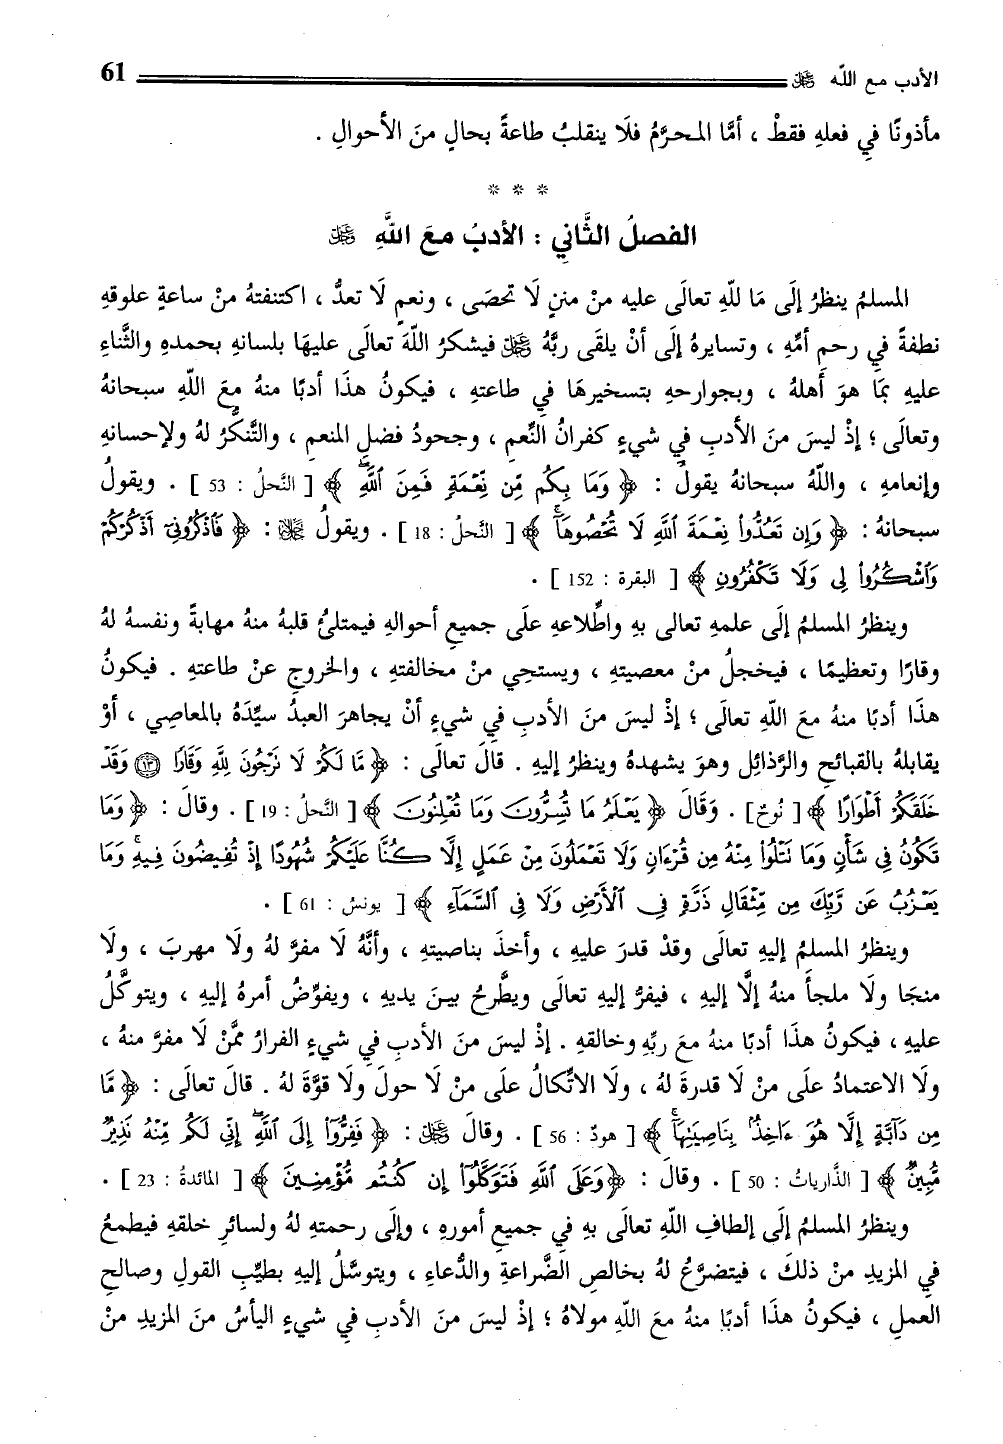 الأدب مع اللّه ﷿ 61
مأذونًا في فعلهِ فقطْ ، أمَّا المحرَّمُ فلَا ينقلبُ طاعةً بحالٍ منَ الأحوالِ .
* * *
الفصلُ الثَّاني : الأدبُ معَ اللَّهِ ﷿
المسلمُ ينظرُ إلَى مَا للّهِ تعالَى عليه منْ مننٍ لَا تحصَى ، ونعمٍ لَا تعدُّ ، اكتنفتهُ منْ ساعةِ علوقهِ
نطفةً في رحمِ أمِّهِ ، وتسايرهُ إلَى أنْ يلقَى ربَّهُ ﷿ فيشكرُ اللّهَ تعالَى عليهَا بلسانهِ بحمدهِ والثَّناءِ
عليهِ بمَا هوَ أهلهُ ، وبجوارحهِ بتسخيرهَا في طاعتهِ ، فيكونُ هذَا أدبًا منهُ معَ اللّهِ سبحانهُ
وتعالَى ؛ إذْ ليسَ منَ الأدبِ في شيءٍ كفرانُ النِّعمِ ، وجحودُ فضلِ المنعمِ ، والتَّنكُّرُ لهُ ولإحسانهِ
وإنعامهِ ، واللّهُ سبحانهُ يقولُ : ﴿ وَمَا بِكُم مِّن نِّعْمَةٍ فَمِنَ ٱللَّهِۖ ﴾ [ النَّحلُ : 53 ] . ويقولُ
سبحانهُ : ﴿ وَإِن تَعُدُّواْ نِعْمَةَ ٱللَّهِ لَا تُحْصُوهَآۗ ﴾ [ النَّحلُ : 18 ] . ويقولُ ﷻ : ﴿ فَٱذْكُرُونِىٓ أَذْكُرْكُمْ
وَٱشْكُرُواْ لِى وَلَا تَكْفُرُونِ ﴾ [ البقرة : 152 ] .
وينظرُ المسلمُ إلَى علمهِ تعالى بهِ واطِّلاعهِ علَى جميعِ أحوالهِ فيمتلئُ قلبهُ منهُ مهابةً ونفسهُ لهُ
وقارًا وتعظيمًا ، فيخجلُ منْ معصيتهِ ، ويستحِي منْ مخالفتهِ ، والخروجِ عنْ طاعتهِ . فيكونُ
هذَا أدبًا منهُ معَ اللّهِ تعالَى ؛ إذْ ليسَ منَ الأدبِ في شيءٍ أنْ يجاهرَ العبدُ سيِّدَهُ بالمعاصِي ، أوْ
يقابلهُ بالقبائحِ والرَّذائلِ وهوَ يشهدهُ وينظرُ إليهِ . قالَ تعالَى : ﴿ مَّا لَكُمْ لَا تَرْجُونَ لِلَّهِ وَقَارًا ۝١٣ وَقَدْ
خَلَقَكُمْ أَطْوَارًا ﴾ [ نُوحٌ] . وَقَالَ ﴿ يَعْلَمُ مَا تُسِرُّونَ وَمَا تُعْلِنُونَ ﴾ [ النَّحلُ : 19 ] . وقالَ : ﴿ وَمَا
تَكُونُ فِى شَأْنٍ وَمَا تَتْلُواْ مِنْهُ مِن قُرْءَانٍ وَلَا تَعْمَلُونَ مِنْ عَمَلٍ إِلَّا كُنَّا عَلَيْكُمْ شُهُودًا إِذْ تُفِيضُونَ فِيهِۚ وَمَا
يَعْزُبُ عَن رَّبِّكَ مِن مِّثْقَالِ ذَرَّةٍ فِى ٱلْأَرْضِ وَلَا فِى ٱلسَّمَآءِ ﴾ [ يونسُ : 61 ] .
وينظرُ المسلمُ إليهِ تعالَى وقدْ قدرَ عليهِ ، وأخذَ بناصيتهِ ، وأنَّهُ لَا مفرَّ لهُ ولَا مهربَ ، ولَا
منجَا ولَا ملجأَ منهُ إلَّا إليهِ ، فيفرُّ إليهِ تعالى ويطَّرحُ بينَ يديهِ ، ويفوِّضُ أمرهُ إليهِ ، ويتوكَّلُ
عليهِ ، فيكونُ هذَا أدبًا منهُ معَ ربِّهِ وخالقهِ . إذْ ليسَ منَ الأدبِ في شيءٍ الفرارُ ممَّنْ لَا مفرَّ منهُ ،
ولَا الاعتمادُ علَى منْ لَا قدرةَ لهُ ، ولَا الاتِّكالُ علَى منْ لَا حولَ ولَا قوَّةَ لهُ . قالَ تعالَى : ﴿ مَّا
مِن دَآبَّةٍ إِلَّا هُوَ ءَاخِذٌۢ بِنَاصِيَتِهَآۚ ﴾ [ هودٌ : 56 ] . وقالَ ﷿ : ﴿ فَفِرُّوٓاْ إِلَى ٱللَّهِۖ إِنِّى لَكُم مِّنْهُ نَذِيرٌ
مُّبِينٌ ﴾ [ الذَّارياتُ : 50 ] . وقالَ : ﴿ وَعَلَى ٱللَّهِ فَتَوَكَّلُوٓاْ إِن كُنتُم مُّؤْمِنِينَ ﴾ [ المائدةُ : 23 ] .
وينظرُ المسلمُ إلَى إلطافِ اللّهِ تعالَى بهِ في جميعِ أمورهِ ، وإلَى رحمتهِ لهُ ولسائرِ خلقهِ فيطمعُ
في المزيدِ منْ ذلكَ ، فيتضرَّعُ لهُ بخالصِ الضَّراعةِ والدُّعاءِ ، ويتوسَّلُ إليهِ بطيِّبِ القولِ وصالحِ
العملِ ، فيكونُ هذَا أدبًا منهُ معَ اللّهِ مولاهُ ؛ إذْ ليسَ منَ الأدبِ في شيءٍ اليأسُ منَ المزيدِ منْ